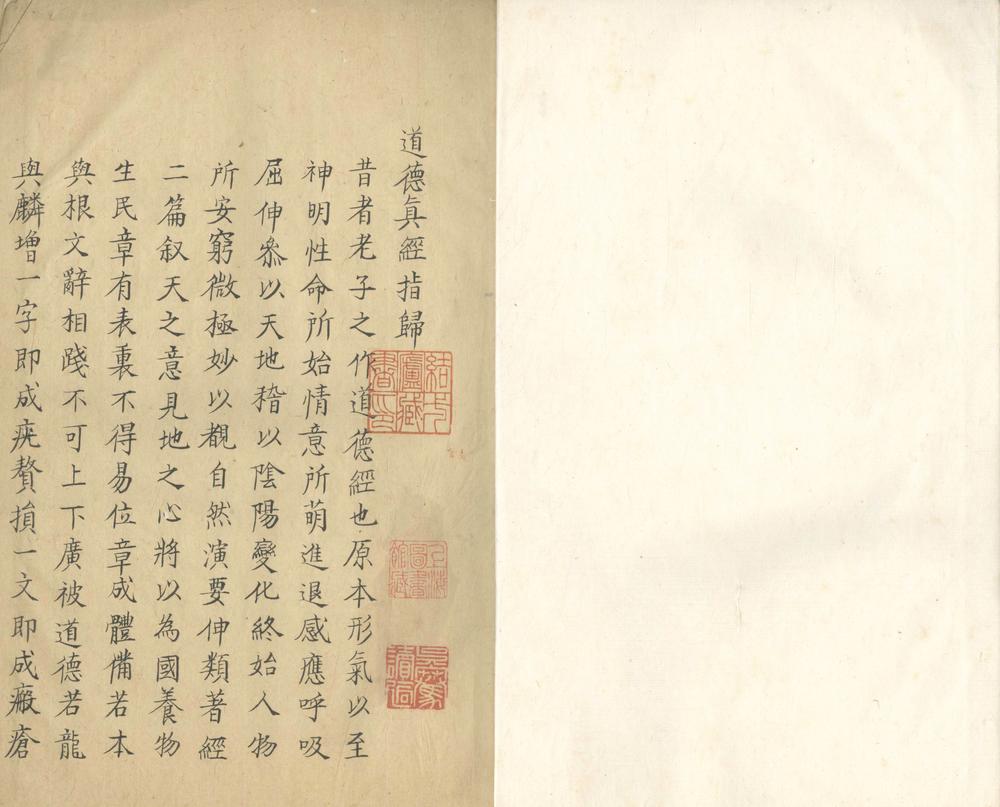 道德真經指歸
昔者老子之作道德經也原本形氣以至
神明性命所始情意所萌進退感應呼吸
屈伸叅以天地稽以陰陽變化終始人物
所安窮微極妙以覩自然演要伸類著經
二篇叙天之意見地之心將以為國養物
生民章有表裏不得易位章成體備若本
與根文辭相踐不可上下廣被道德若龍
與麟增一字即成疣贅損一文即成瘢瘡
結一廬藏書印
上海圖書館藏